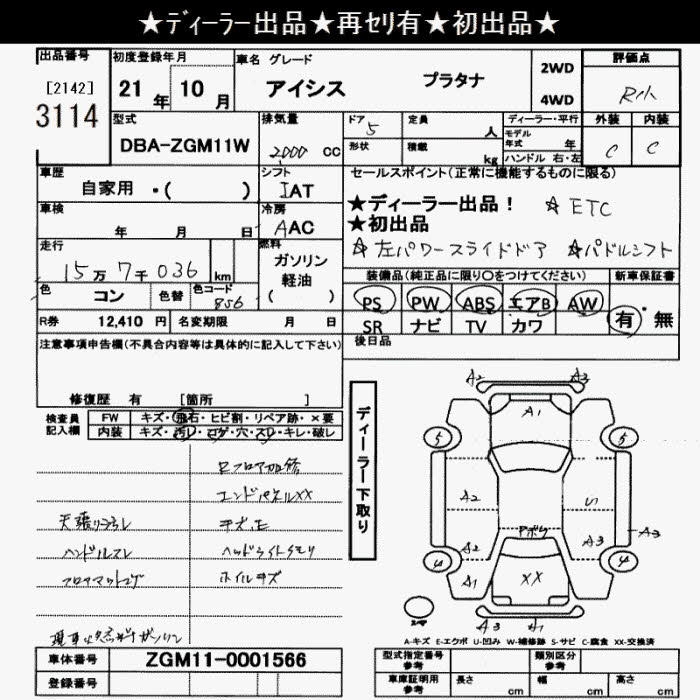 ★ディーラー出品★再セリ有★初出品★
出品番号 初度登録年月 車名 グレード 2WD 評価点
[2142] 21年 10月 アイシス プラタナ 4WD R小
3114
型式 排気量 ドア 定員 ディーラー・平行 外装 内装
DBA-ZGM11W 2000 CC 5 人 モデル年式 年 C C
形状 積載 kg ハンドル 右・左
車歴 シフト セールスポイント(正常に機能するものに限る)
自家用 ・( ) IAT ★ディーラー出品! ☆ETC
車検 冷房 ★初出品
年 月 日 AAC ☆左パワースライドドア ☆パドルシフト
走行 燃料
15万 7千 036 km ガソリン 軽油 ( )
装備品(純正品に限り○をつけてください) 新車保証書
色 コン 色替 色コード 856 PS PW ABS エアB AW 有・無
R券 12,410 円 名変期限 月 日 SR ナビ TV カワ
注意事項申告欄(不具合内容等は具体的に記入して下さい) 後日品
修復歴 有 [箇所 ]
検査員記入欄 FW キズ・飛石・ヒビ割・リペア跡・×要
内装 キズ・汚レ・コゲ・穴・スレ・キレ・破レ
エンドパネルXX
ハンドルスレ ヘッドライトクモリ
ホイルキズ
ディーラー下取り
A2 A2
A1
5 5
A2 U
アボウ
A2 A3 A3
4 4
A1 XX
A3 A1
A-キズ E-エクボ U-凹み W-補修跡 S-サビ C-腐食 XX-交換済
車体番号 ZGM11-0001566 型式指定番号 参考 類別区分 参考
登録番号 車庫証明用 参考 長さ cm 幅 cm 高さ cm